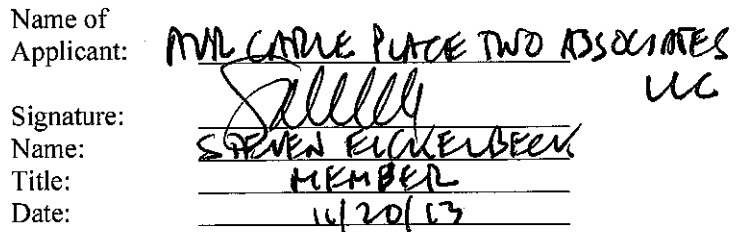 Name of
Applicant: AVR CARLE PLACE TWO ASSOCIATES
LLC
Signature:
Name: STEVEN EICKELBECK
Title: MEMBER
Date: 11/20/13